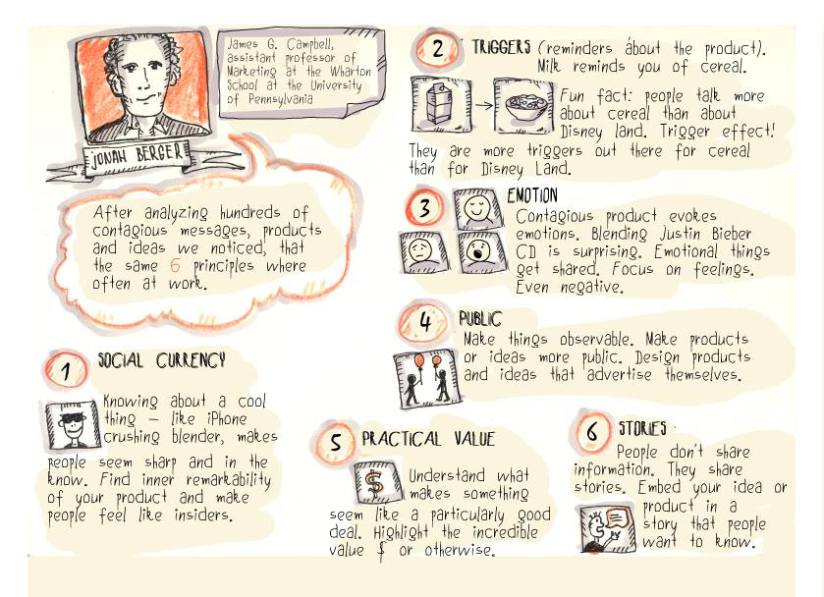 James G. Campbell,
assistant professor of
Marketing at the Wharton
School at the University
of Pennsylvania
JONAH BERGER
After analyzing hundreds of
contagious messages, products
and ideas we noticed, that
the same 6 principles where
often at work.
1 SOCIAL CURRENCY
Knowing about a cool
thing – like iPhone
crushing blender, makes
people seem sharp and in the
know. Find inner remarkability
of your product and make
people feel like insiders.
2 TRIGGERS (reminders about the product).
Milk reminds you of cereal.
Fun fact: people talk more
about cereal than about
Disney land. Trigger effect!
They are more triggers out there for cereal
than for Disney Land.
3 EMOTION
Contagious product evokes
emotions. Blending Justin Bieber
CD is surprising. Emotional things
get shared. Focus on feelings.
Even negative.
4 PUBLIC
Make things observable. Make products
or ideas more public. Design products
and ideas that advertise themselves.
5 PRACTICAL VALUE
$ Understand what
makes something
seem like a particularly good
deal. Highlight the incredible
value $ or otherwise.
6 STORIES
People don't share
information. They share
stories. Embed your idea or
product in a
story that people
want to know.